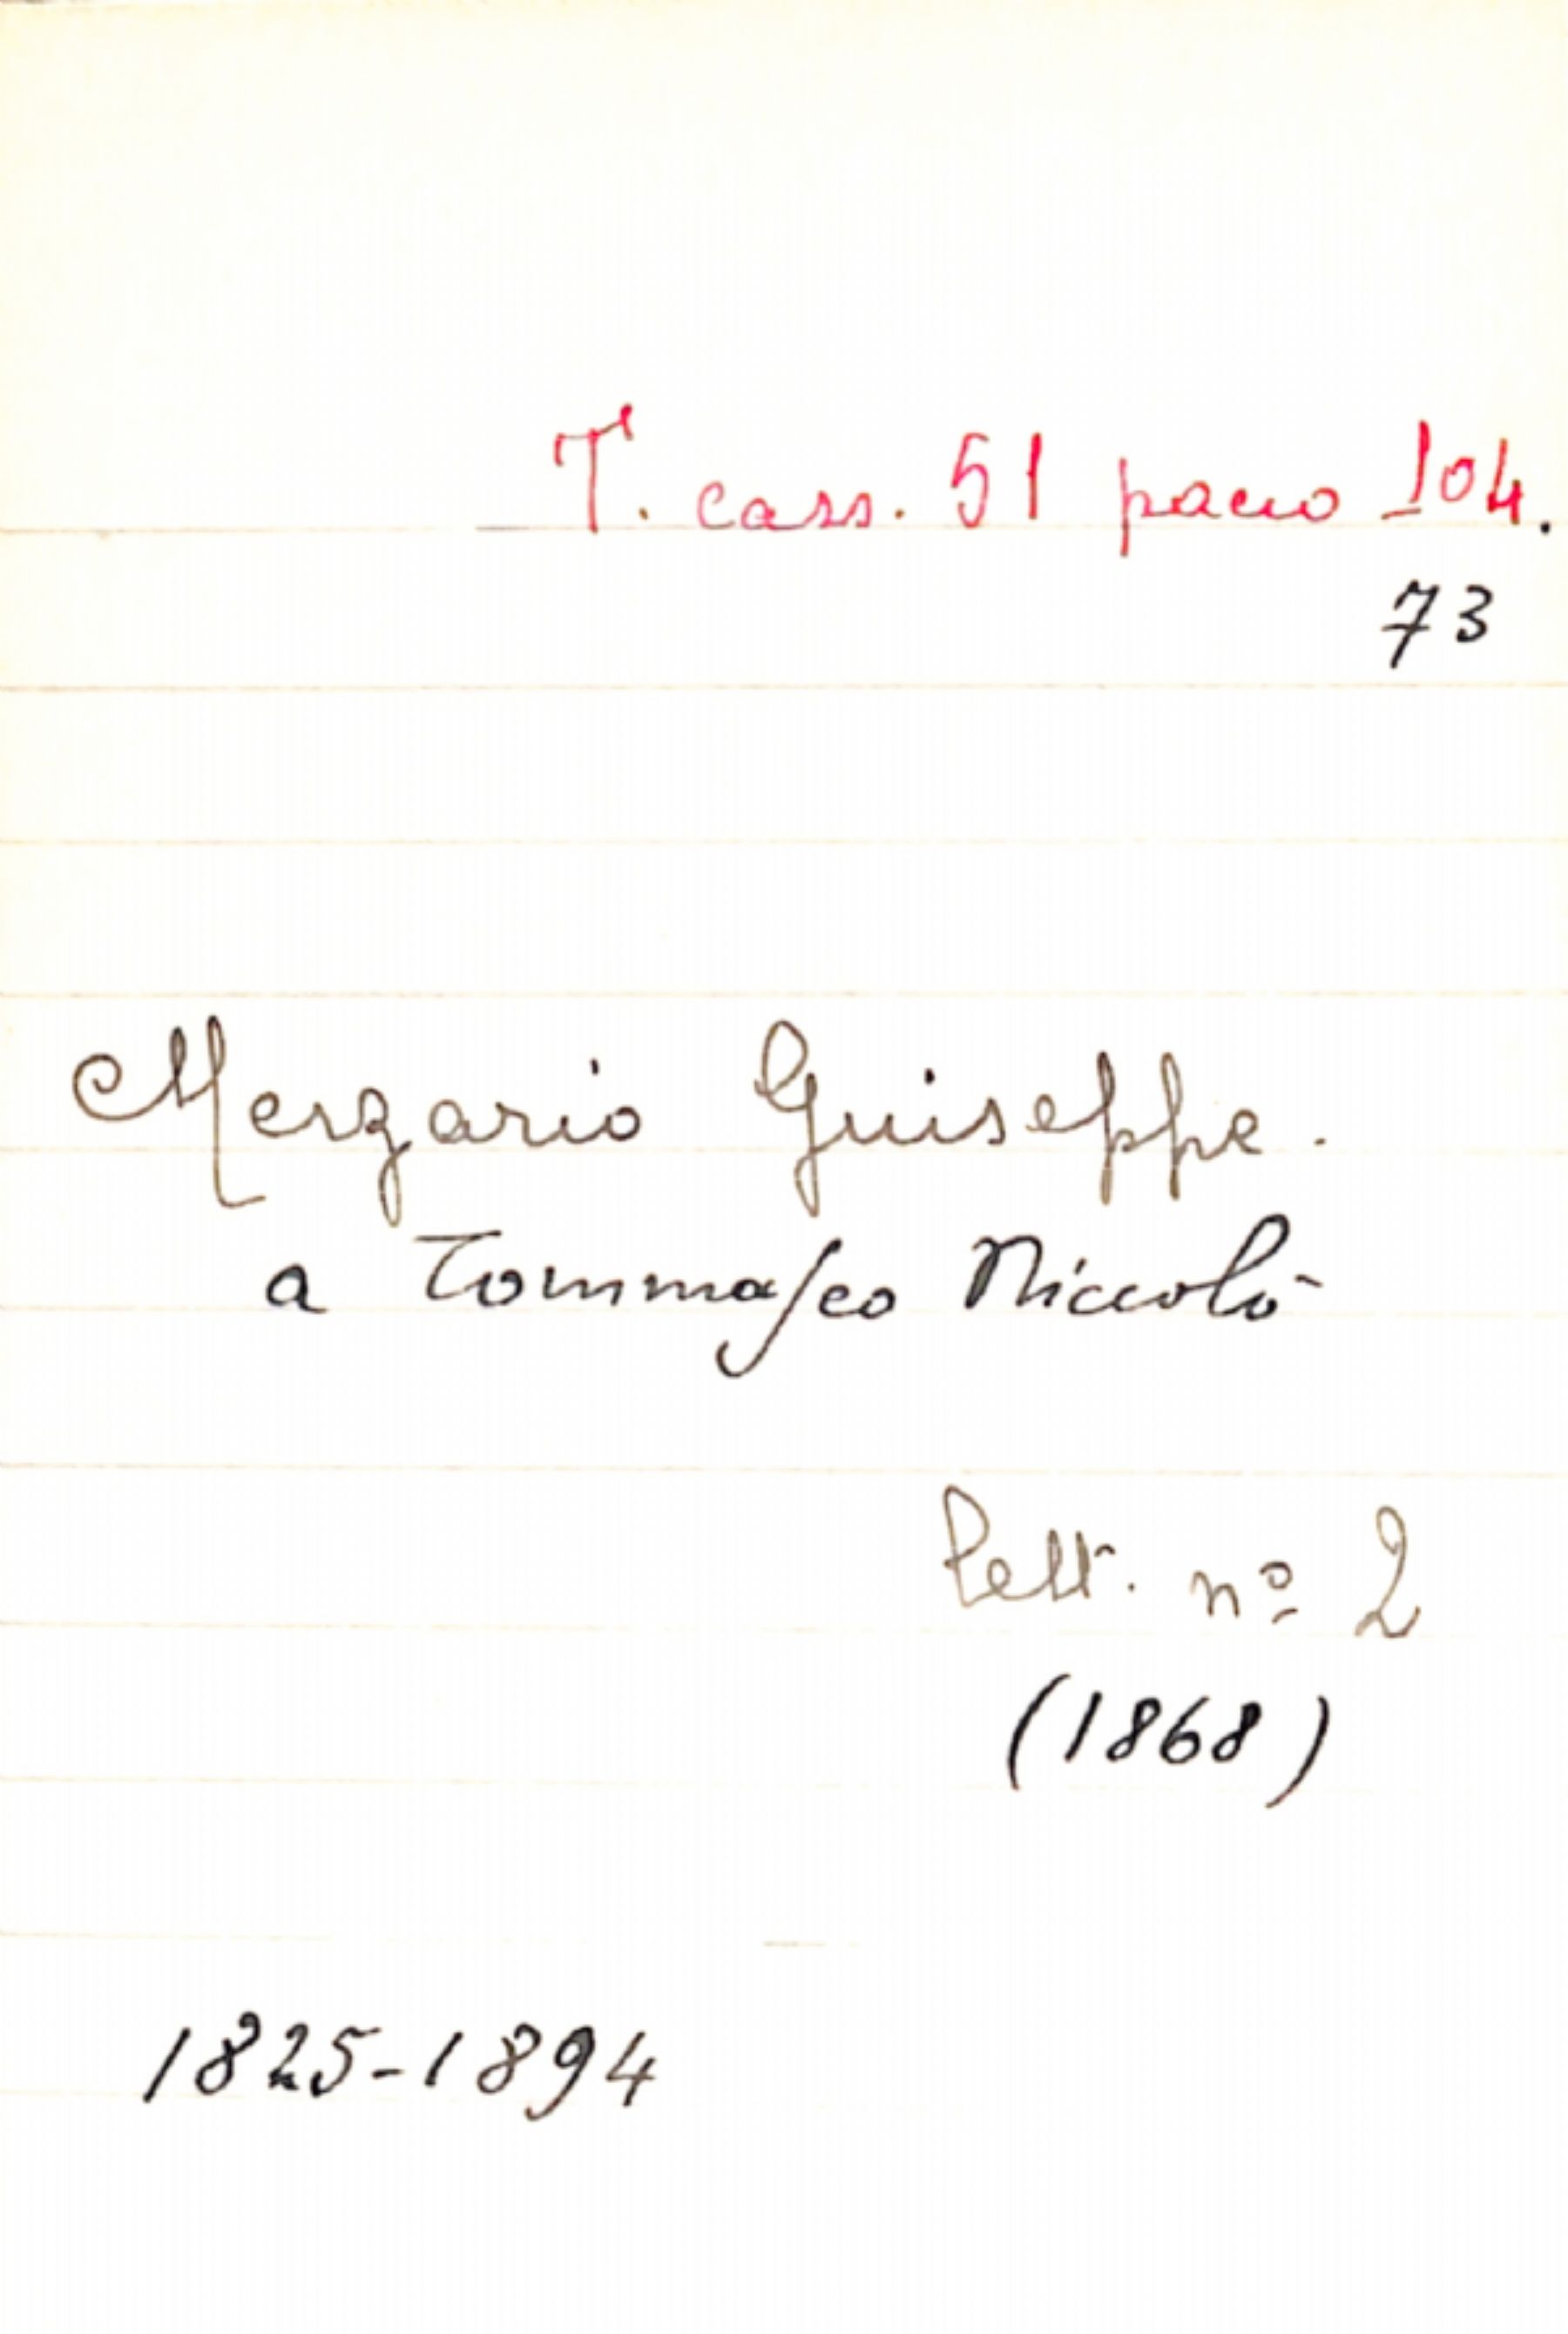 T. cass. 51 pacco 104.
73
Merzario Giuseppe.
a Tommaseo Niccolò
Lett. nº 2
(1868)
1825-1894